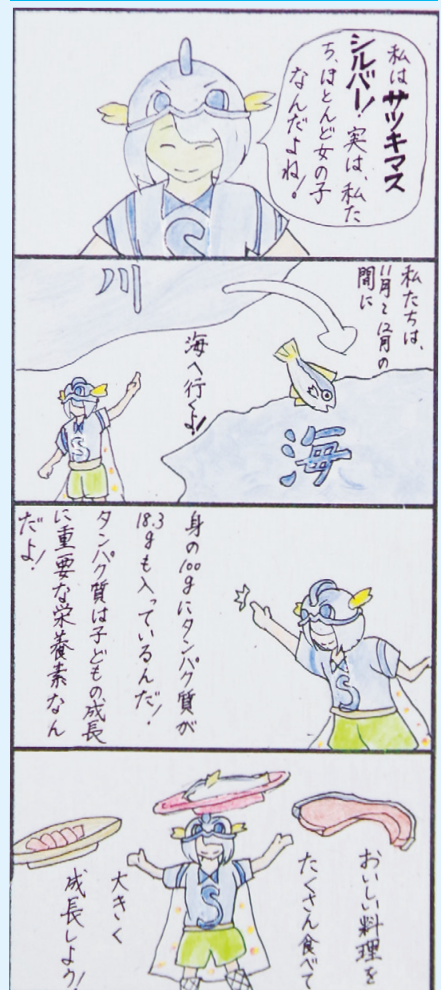 私はサツキマス
シルバー！実は、私た
ち、ほとんど女の子
なんだよね！
私たちは、
11月と12月の
間に
川
海へ行くよ！
海
S
身の100gにタンパク質が
18.3gも入っているんだ！
タンパク質は子どもの成長
に重要な栄養素なん
だよ！
S
おいしい料理を
たくさん食べて
大きく
成長しよう！
S